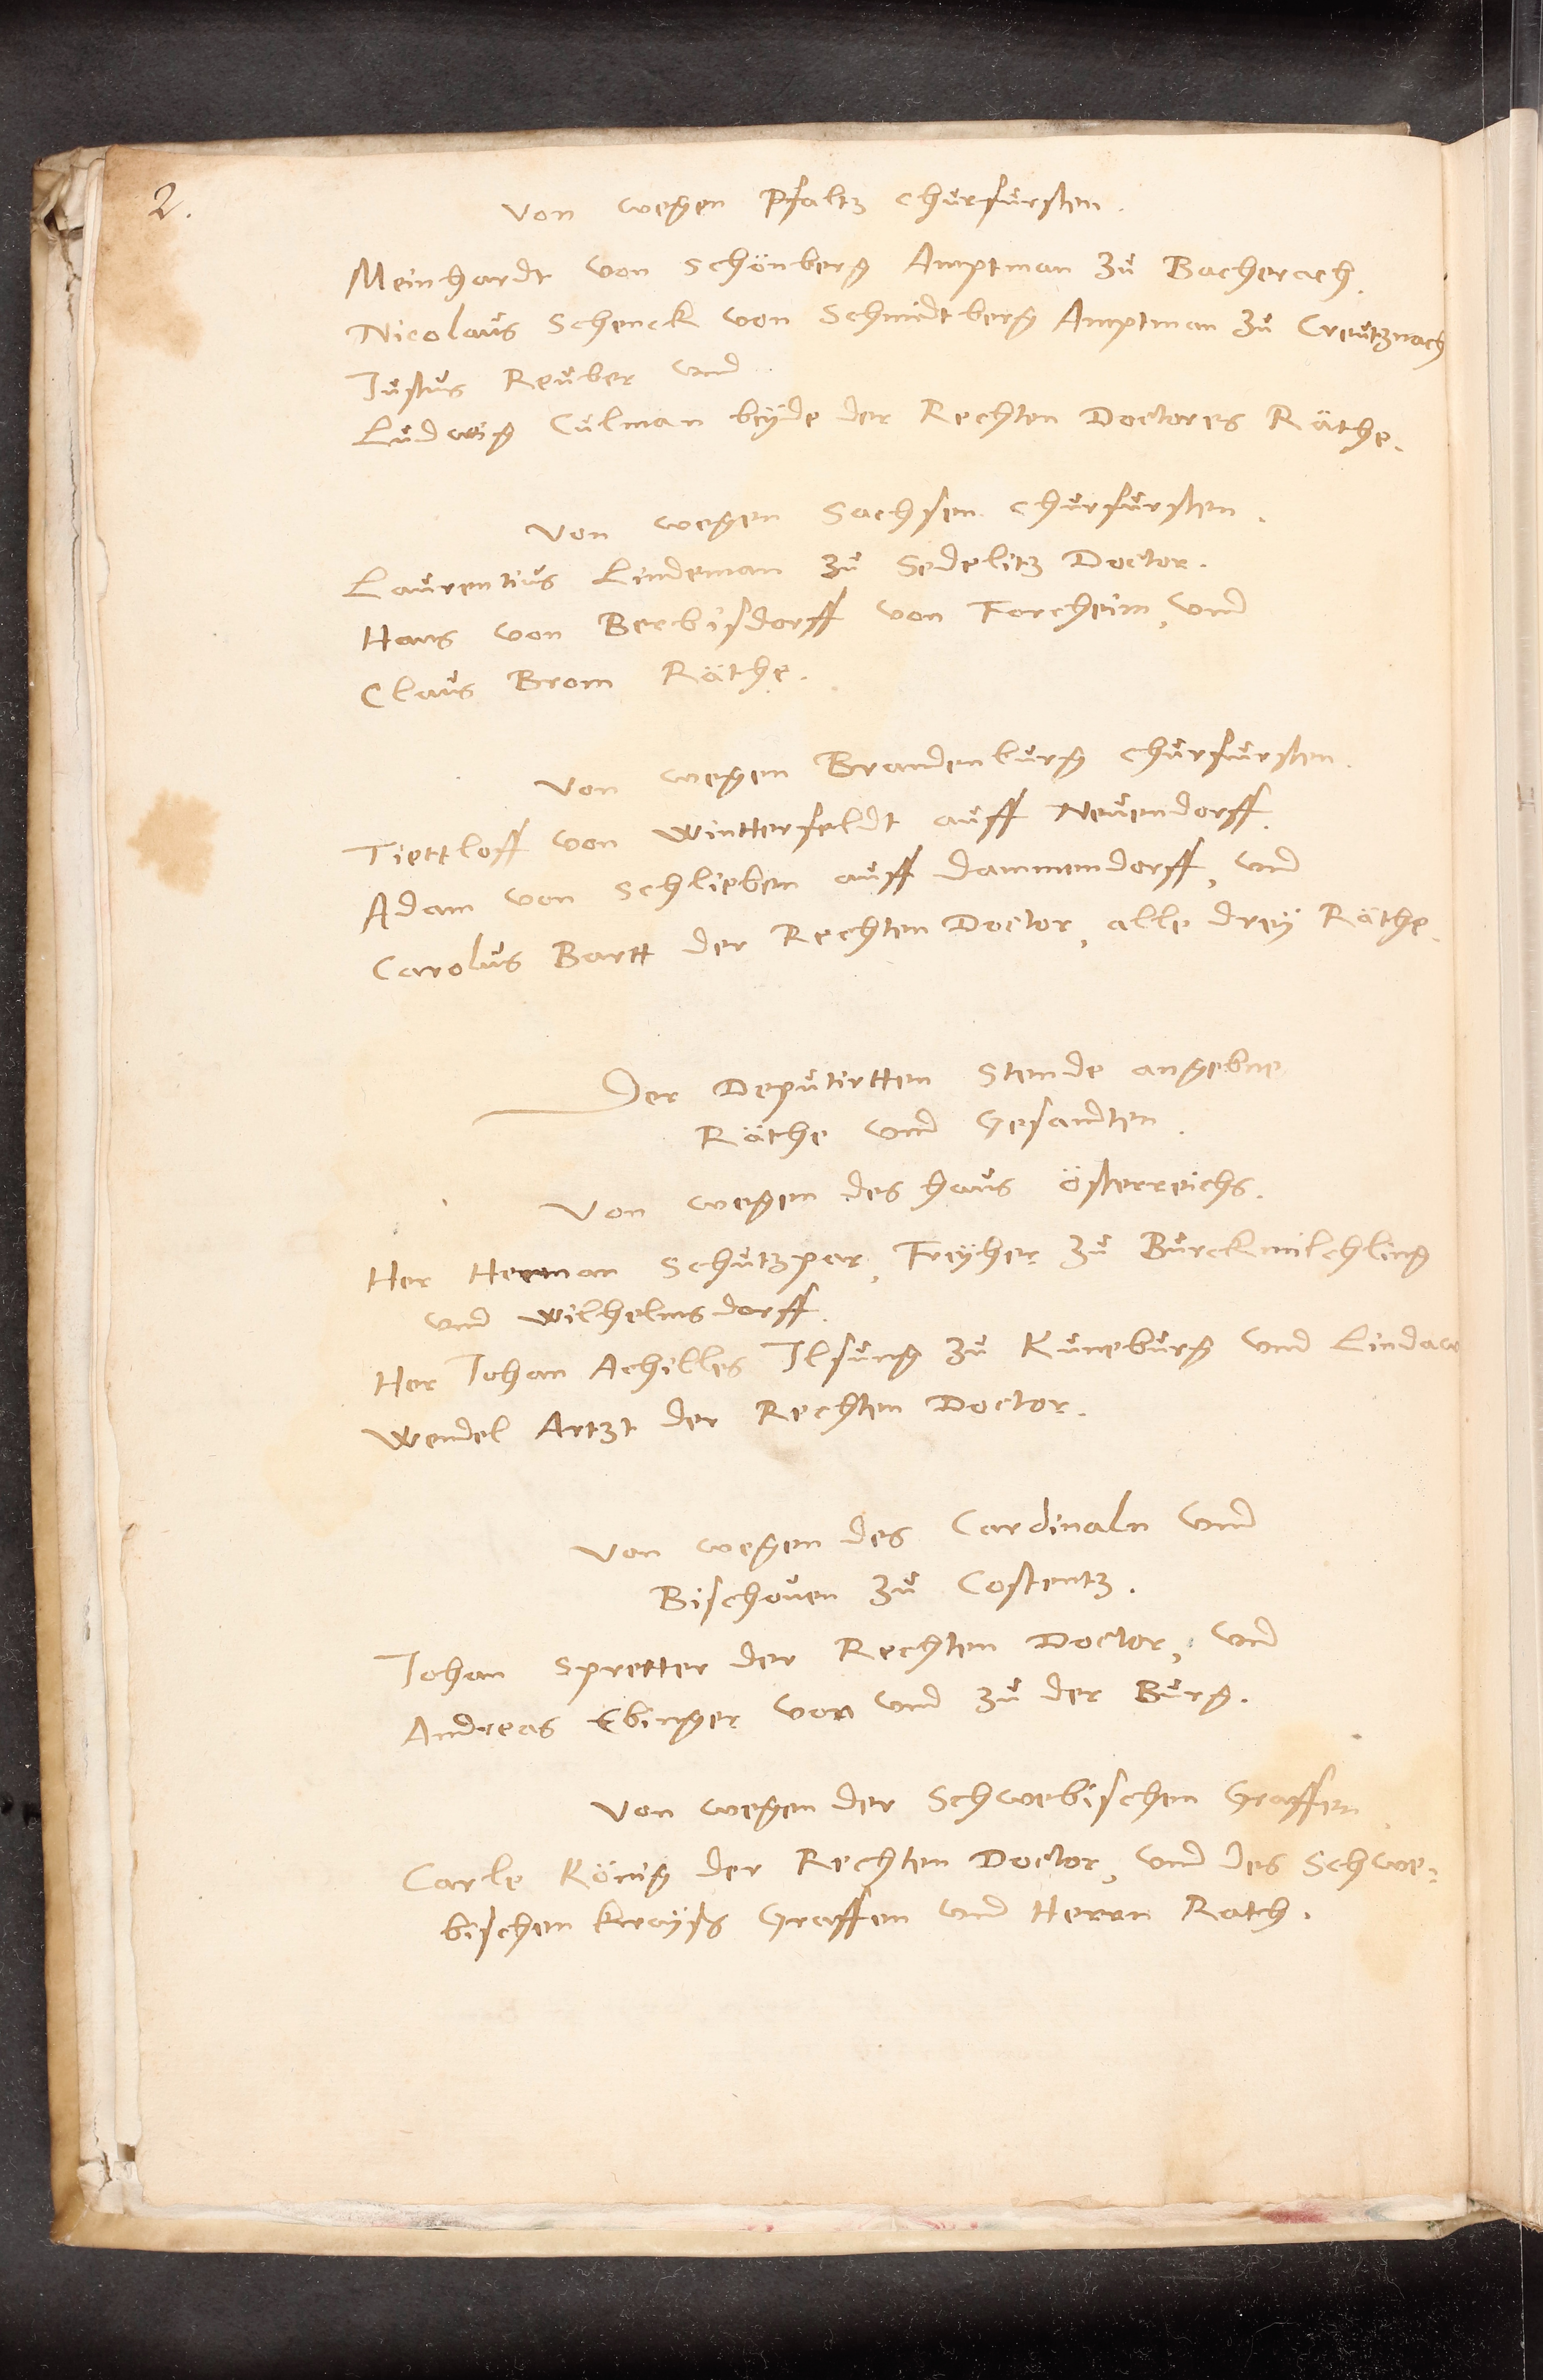 2.
Von wegen Pfaltz Churfursten.
Meinhardt von Schönberg Amptman zu Bacherach.
Nicolaus Schenck von Schmidtberg Amptman zu Creutznach
Justus Reuber und
Ludwig Culman beyde der Rechten Doctores Räthe.
Von wegen Sachsen Churfursten.
Laurentius Lindeman zu Sedelitz Doctor.
Hans von Berbisdorff von Forcheim, und
Claus Brom Räthe.
Von wegen Brandenburg Churfursten.
Tiettloff von Wintterfeldt auff Neuendorff.
Adam von Schlieben auff Dammendorff, und
Carolus Bartt der Rechten Doctor, alle drey Räthe.
Der Deputirtten Stende angebne
Räthe und Gesandten.
Von wegen des Haus Österreichs.
Her Herman Schutzpar, Freyher zu Burckmilchling
und Wilhelmsdorff.
Her Johan Achilles Ilsung zu Kuneburg und Lindaw
Wendel Artzt der Rechten Doctor.
Von wegen des Cardinaln und
Bischoven zu Costentz.
Johan Spretter der Rechten Doctor, und
Andreas Ebinger von und zu der Burg.
Von wegen der Schwebischen Graffen.
Carle König der Rechten Doctor, und des Schwe-
bischen Krayss Graffen und Herrn Rath.